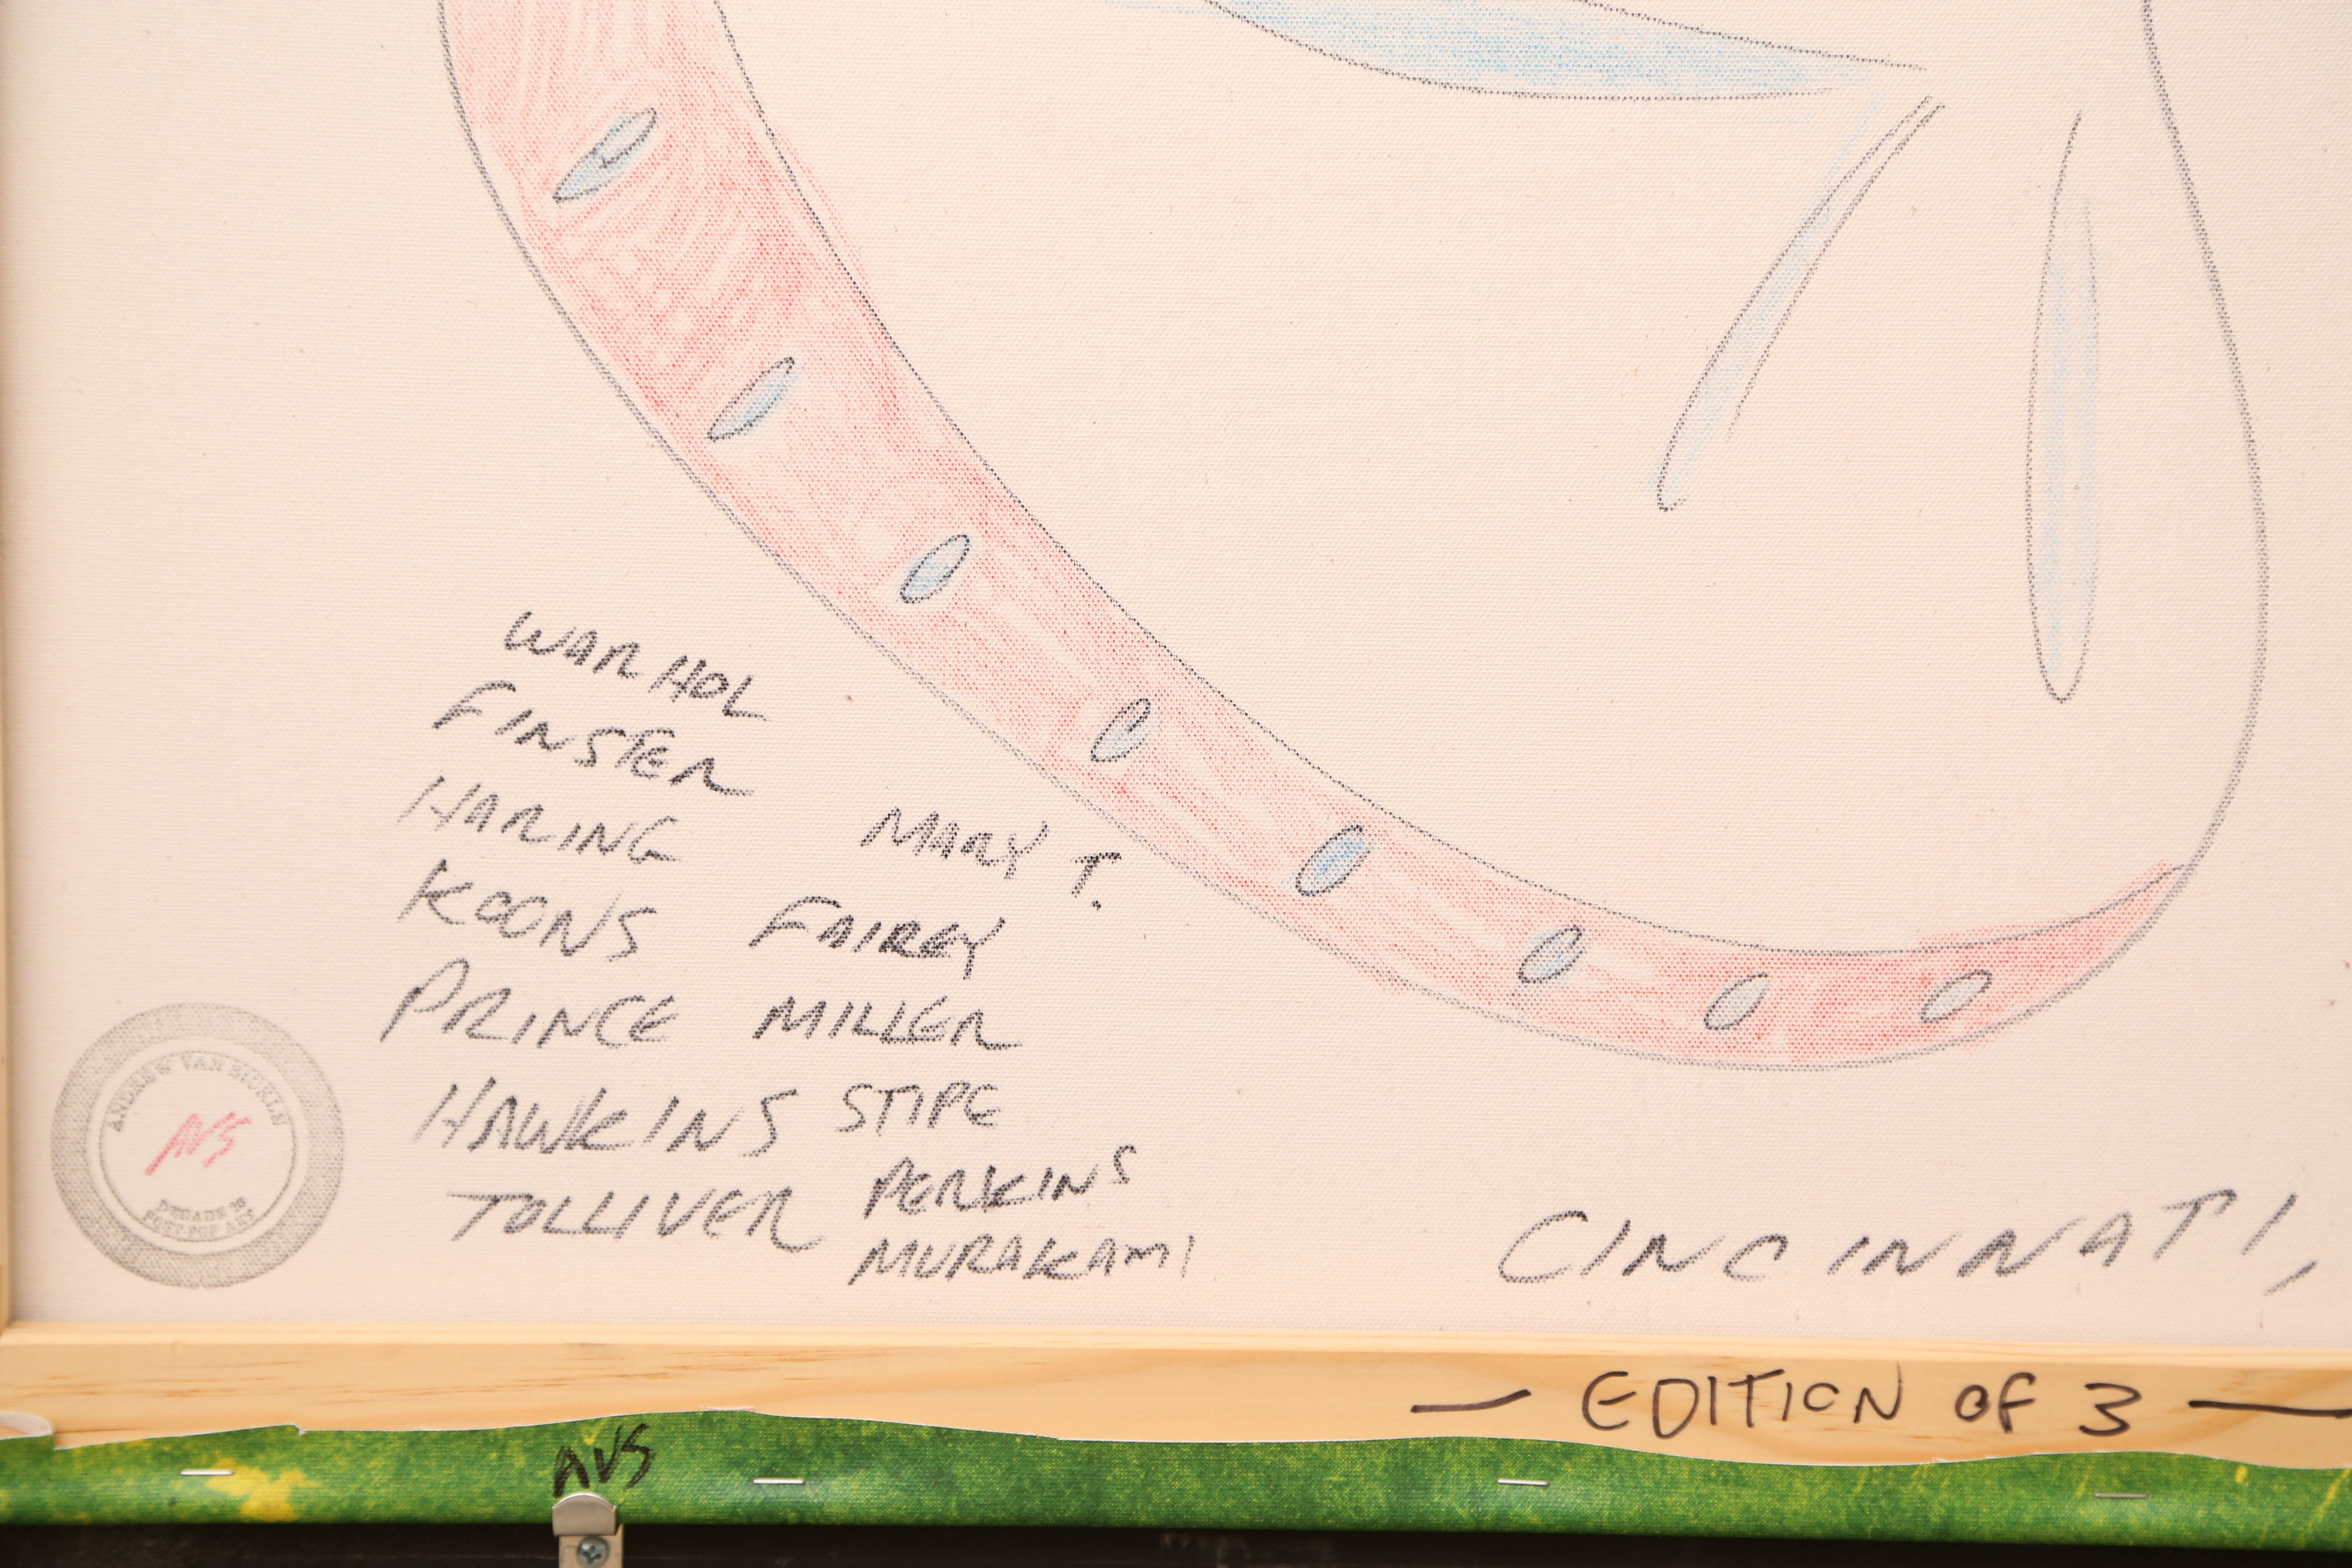 WARHOL
FINSTER
HARING
KOONS
PRINCE
HAWKINS
TOLLIVER
MARY T.
FAIREY
MILLER
STIPE
PERKINS
MURAKAMI
CINCINNATI,
ANDREW VAN SICKLS
AVS
DECADE
POST POP ART
— EDITION OF 3 —
AVS